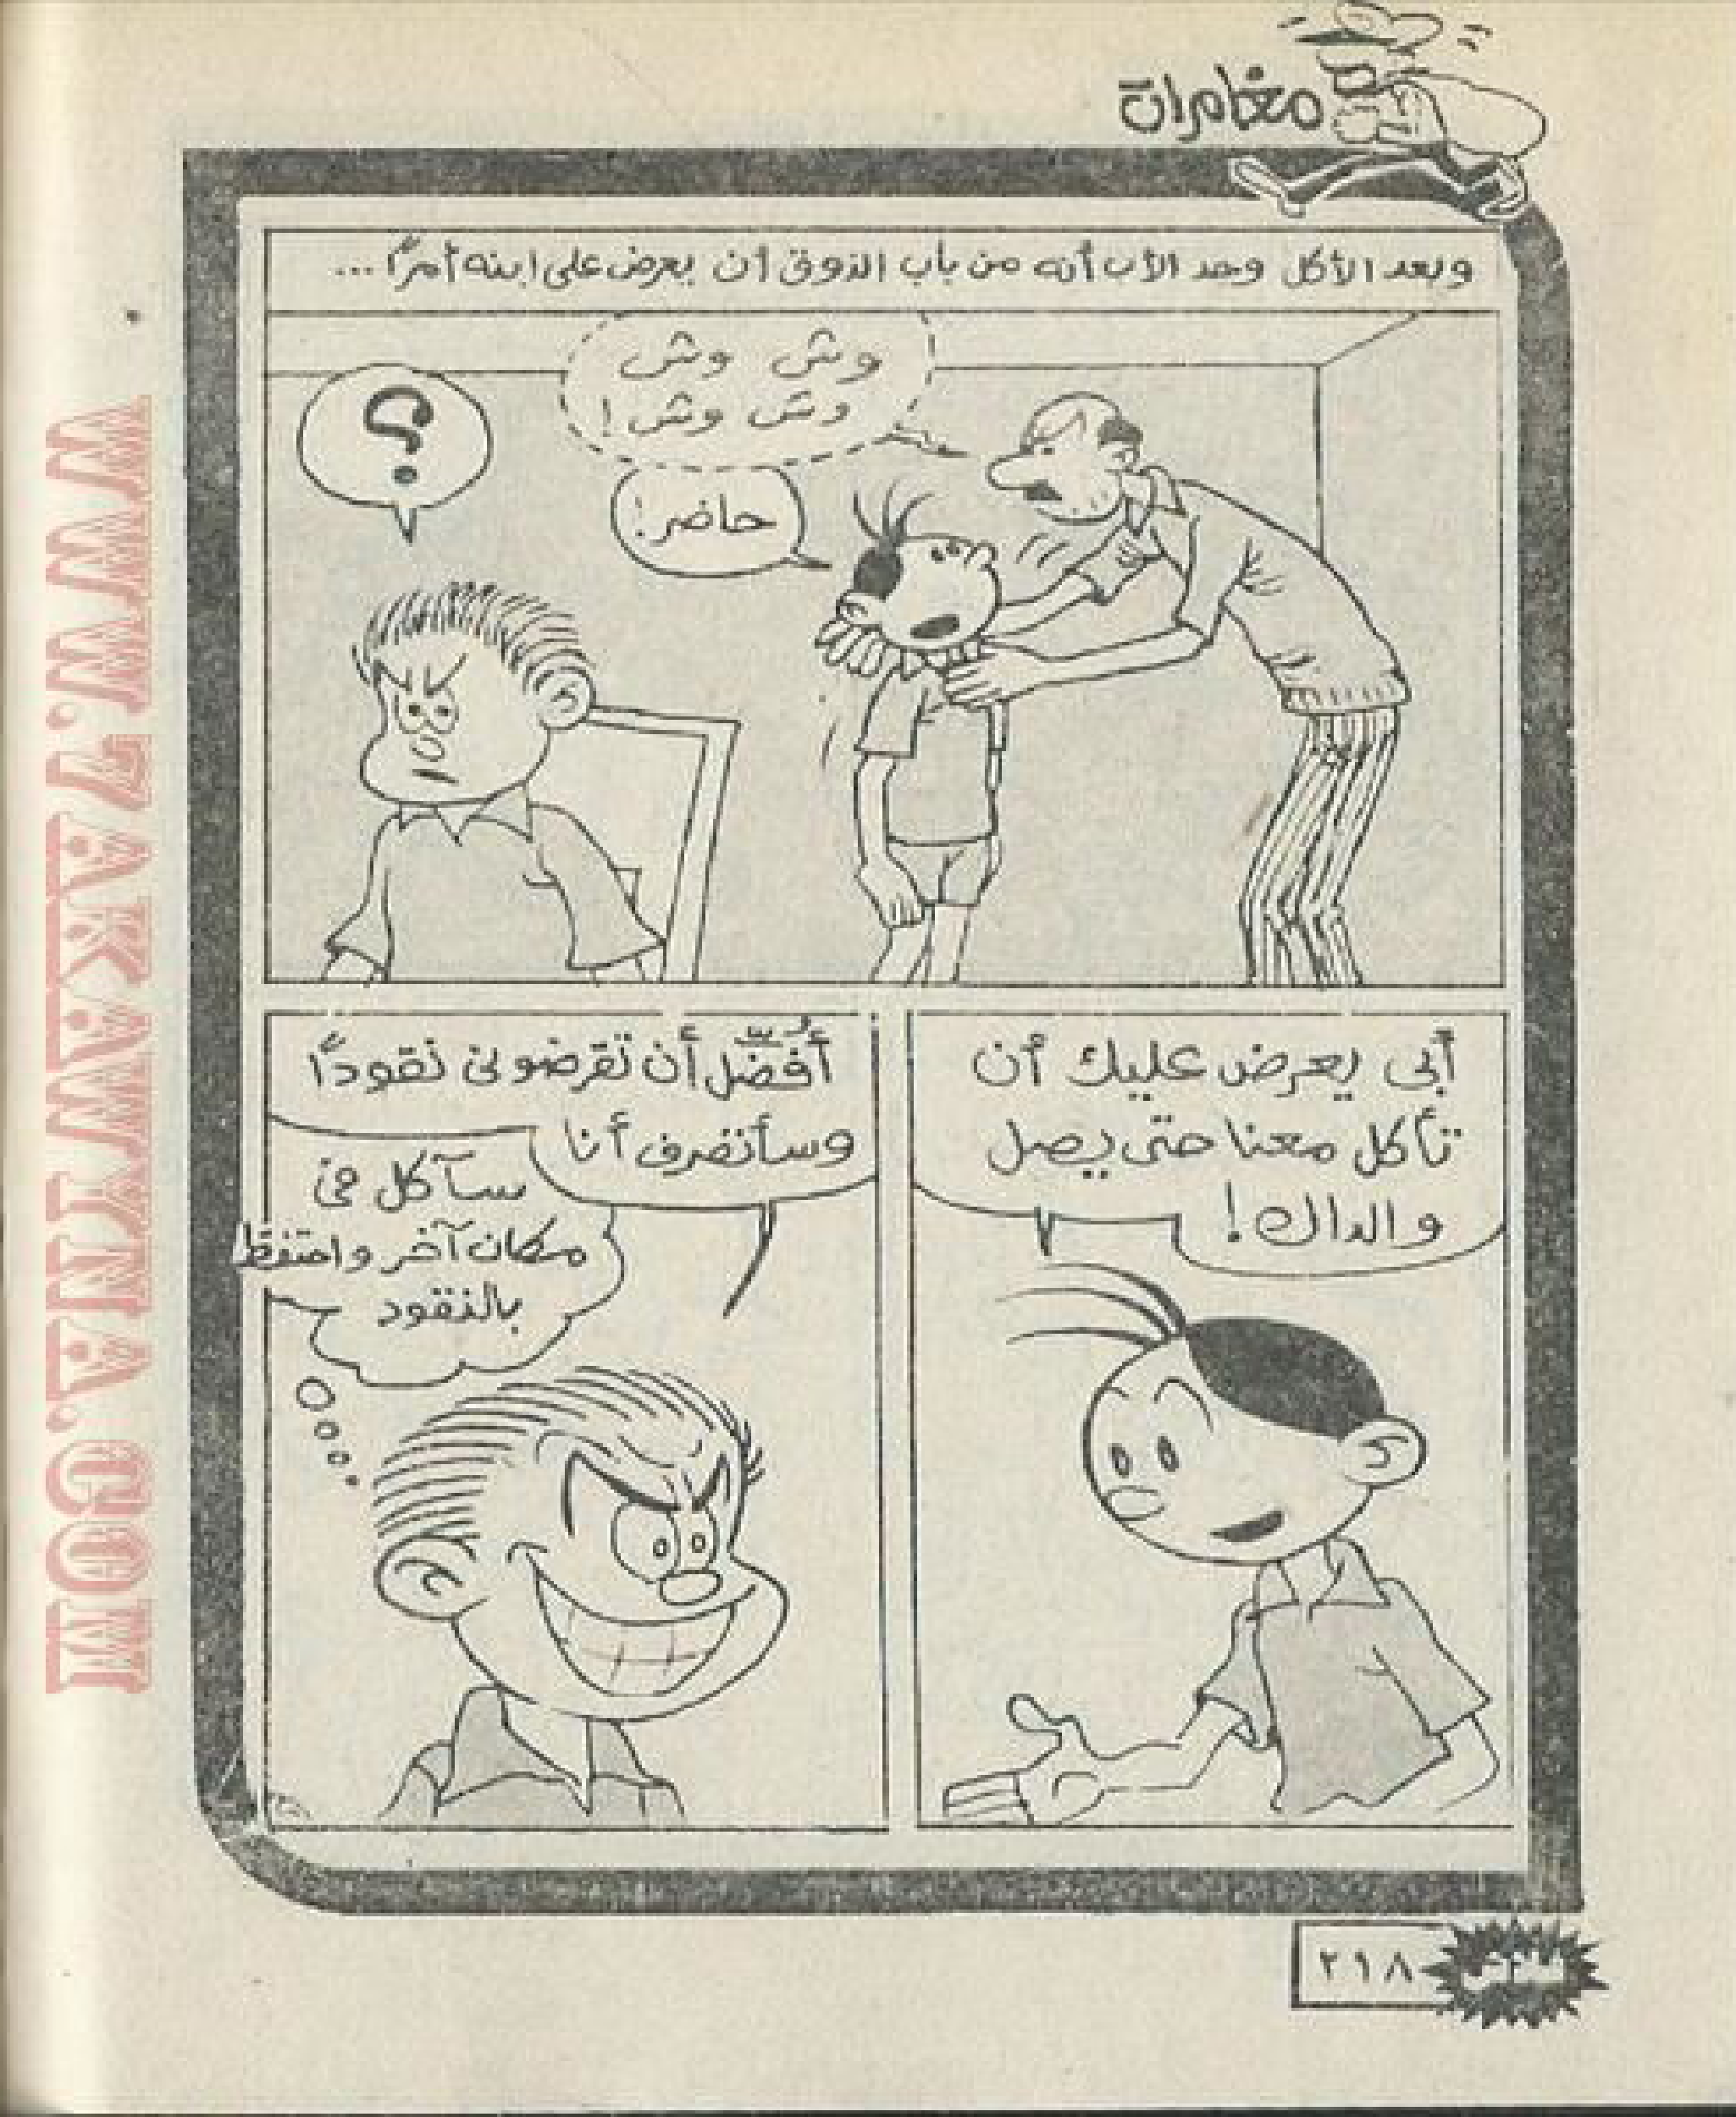 مغامرات
وبعد الأكل وجد الأب أنه من باب الذوق أن يعرض على ابنه أمرًا ...
وش وش
وش وش!
حاضر!
؟
أبى يعرض عليك أن
تأكل معنا حتى يصل
والداك!
أُفضّل أن تقرضونى نقودًا
وسأتصرف أنا
سآكل فى
مكان آخر واحتفظ
بالنقود
٢١٨
WWW.7AKAWITNA.COM